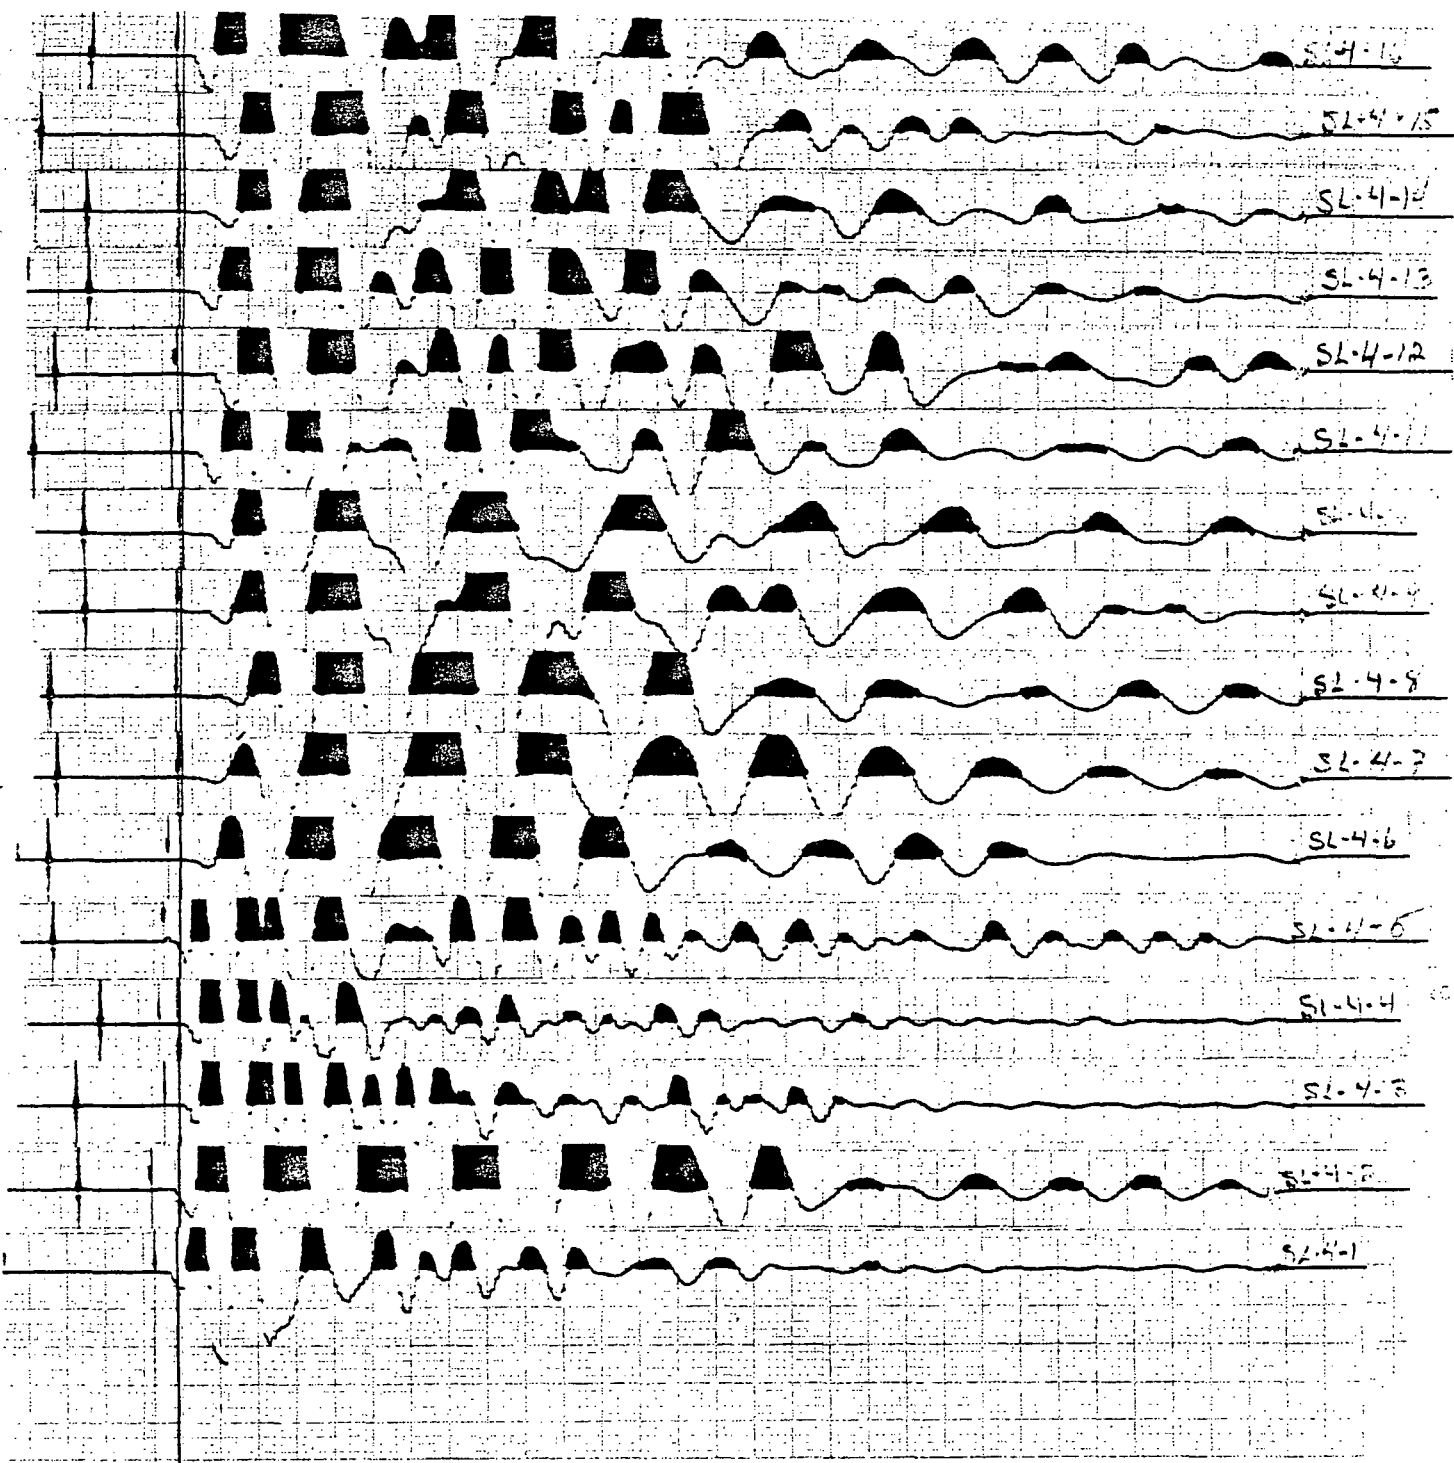 SL-4-16
SL-4-15
SL-4-14
SL-4-13
SL-4-12
SL-4-11
SL-4-9
SL-4-8
SL-4-7
SL-4-6
SL-4-5
SL-4-4
SL-4-3
SL-4-2
SL-4-1